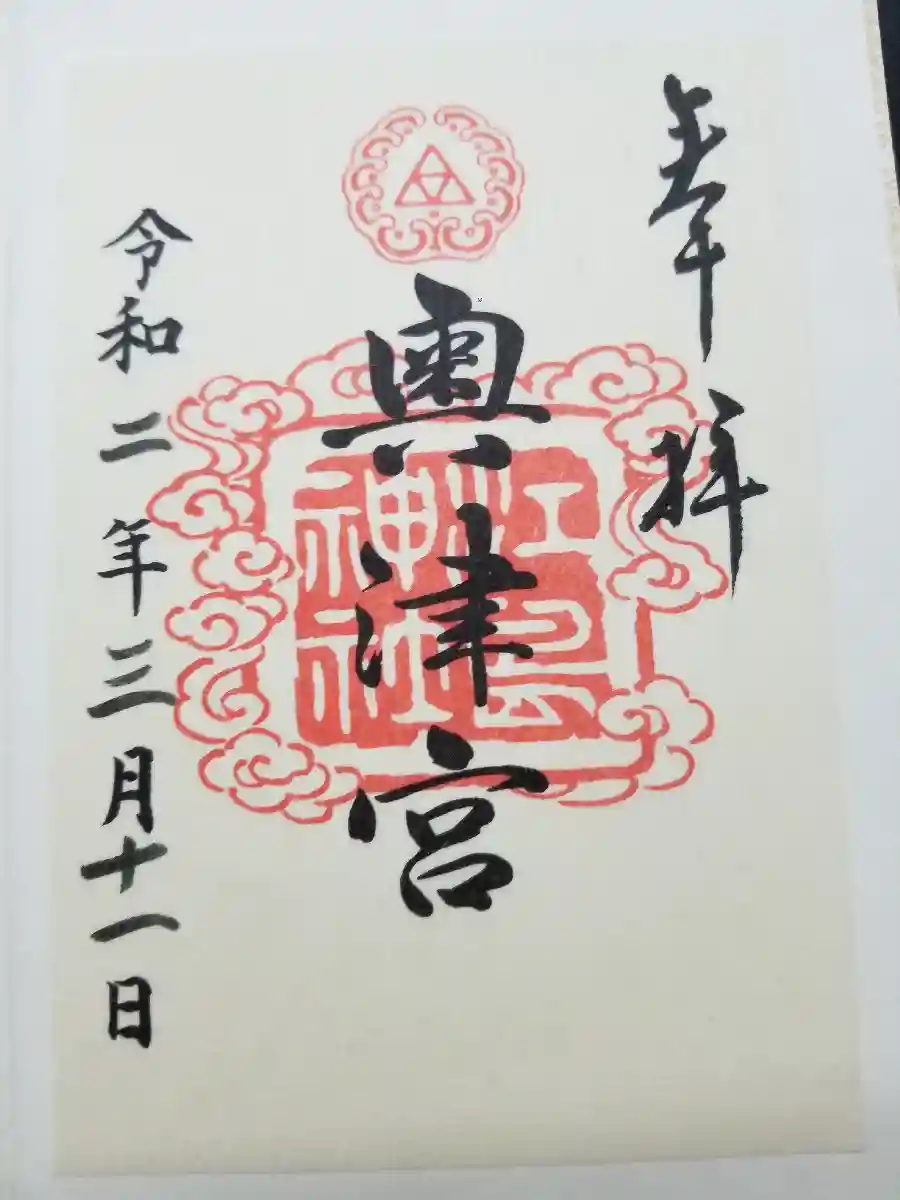 奉拝
奥津宮
江島神社
令和二年三月十一日